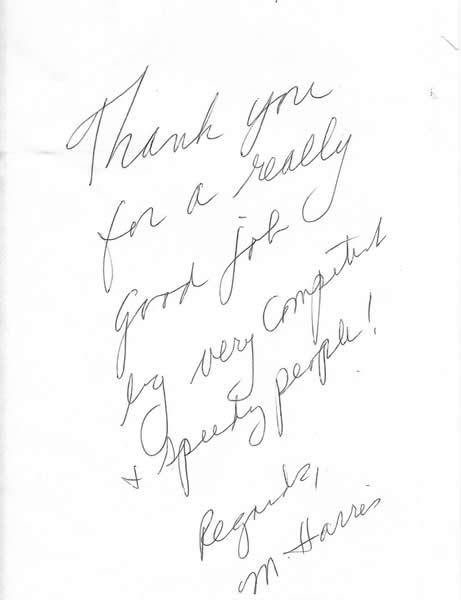 Thank you
for a really
good job
by very competent
+ speedy people!
Regards,
M. Harris